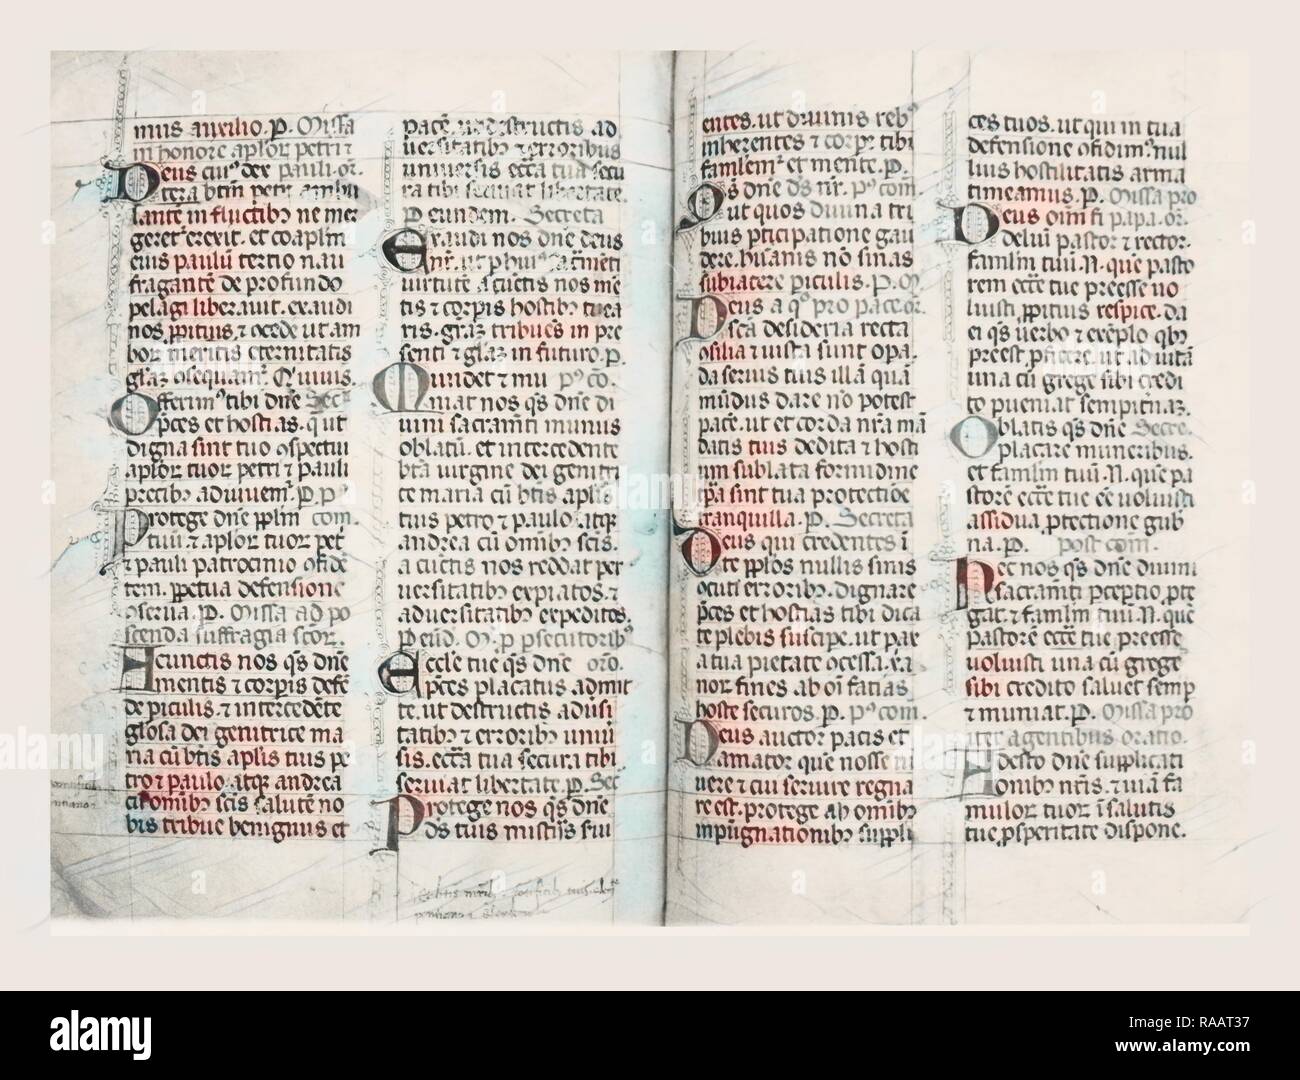 mus auxilio. P. Missa
in honore aplor petri ⁊
Deus cuiꝰ dex pauli. or.
tera btm petr ambu
lante in fluctibꝫ ne mer
geret erexit. et coaplm
eius paulu tertio nau
fragante de profundo
pelagi liberauit. exaudi
nos ppitius ⁊ ocede ut am
bor meritis eternitatis
glaz osequam. Q uiuis.
Offerimꝰ tibi dne Sec
pces et hostias. q ut
digna sint tuo ospectui
aplor tuor petri ⁊ pauli
precibꝫ adiuuem. P. pꝰ
Protege dne pplm com.
tuu ⁊ aplor tuor pet
⁊ pauli patrocinio ofide
tem. ppetua defensione
oserua. P. Missa ad po
scenda suffragia scor.
A cunctis nos qs dne
mentis ⁊ corpis defe
de piculis. ⁊ intercedete
glosa dei genitrice ma
ria cu btis aplis tuis pe
tro ⁊ paulo. atqz andrea
et omibꝫ scis salute no
bis tribue benignus et
pace. ut destructis ad
uersitatibꝫ ⁊ erroribus
uniuersis ecca tua secu
ra tibi seruiat libertate.
P eundem. Secreta
Exaudi nos dne deus
nr. ut p huiꝰ sacmeti
uirtute a cuctis nos me
tis ⁊ corpis hostibꝫ tuea
ris. graz tribues in pre
senti ⁊ glaz in futuro. P.
Mundet ⁊ mu pꝰ co.
niat nos qs dne di
uini sacramti munus
oblatu. et intercedente
bta uirgine dei genitri
te maria cu btis aplis
tuis petro ⁊ paulo. atqz
andrea cu omibꝫ scis.
a cuctis nos reddat per
uersitatibꝫ expiatos. ⁊
aduersitatibꝫ expeditos.
P eud. M. p psecutoribꝰ
Eccle tue qs dne oro.
pces placatus admit
te. ut destructis adusi
tatibꝫ ⁊ erroribꝫ uniu
sis. ecca tua secura tibi
seruiat libertate. P. Sec
Protege nos qs dne
tuis mistiis sui
entes. ut diuinis rebꝰ
inherentes ⁊ corpe tibi
famlemꝰ et mente. P.
Qs dne ds nr. Pꝰ com.
ut quos diuina tri
buis pticipatione gau
dere. humanis no sinas
subiacere piculis. P. M
Deus a qꝰ pro pace. or.
sca desideria recta
osilia ⁊ iusta sunt opa.
da seruis tuis illa qua
mudus dare no potest
pace. ut et corda nra ma
datis tuis dedita ⁊ hosti
um sublata formidine
tpa sint tua protectioe
tranquilla. P. Secreta
Deus qui credentes i
te pplos nullis sinis
ocuti erroribꝫ. dignare
pces et hostias tibi dica
te plebis suscipe. ut pax
a tua pietate ocessa. xia
nor fines ab oi fatias
hoste securos. P. Pꝰ com.
Deus auctor pacis et
amator que nosse ui
uere ⁊ cui seruire regna
re est. protege ab omibꝫ
impugnationibꝫ suppli
ces tuos. ut qui in tua
defensione ofidimꝰ nul
lius hostilitatis arma
timeamus. P. Missa pro
Deus oim fi papa. or.
deliu pastor ⁊ rector.
famlm tuu. N. que pasto
rem ecce tue preesse uo
luisti, ppitius respice. da
ei qs uerbo ⁊ exeplo qbꝫ
preest, pficere. ut ad uita
una cu grege sibi credi
to pueniat sempitnaz.
Oblatis qs dne Secre.
placare muneribus.
et famlm tuu. N. que pa
store ecce tue ee uoluisti
assidua, ptectione gub
na. P. post com.
Hec nos qs dne diuini
sacramti pceptio, pte
gat. ⁊ famlm tuu. N. que
pastore ecce tue preesse
uoluisti una cu grege
sibi credito saluet semp
⁊ muniat. P. Missa pro
iter agentibus oratio.
Adesto dne supplicati
onibꝫ nris. ⁊ uia fa
mulor tuor i salutis
tue, psperitate dispone.
alamy
Image ID: RAAT37
www.alamy.com